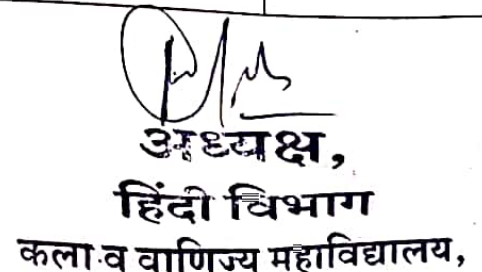 अध्यक्ष,
हिंदी विभाग
कला व वाणिज्य महाविद्यालय,